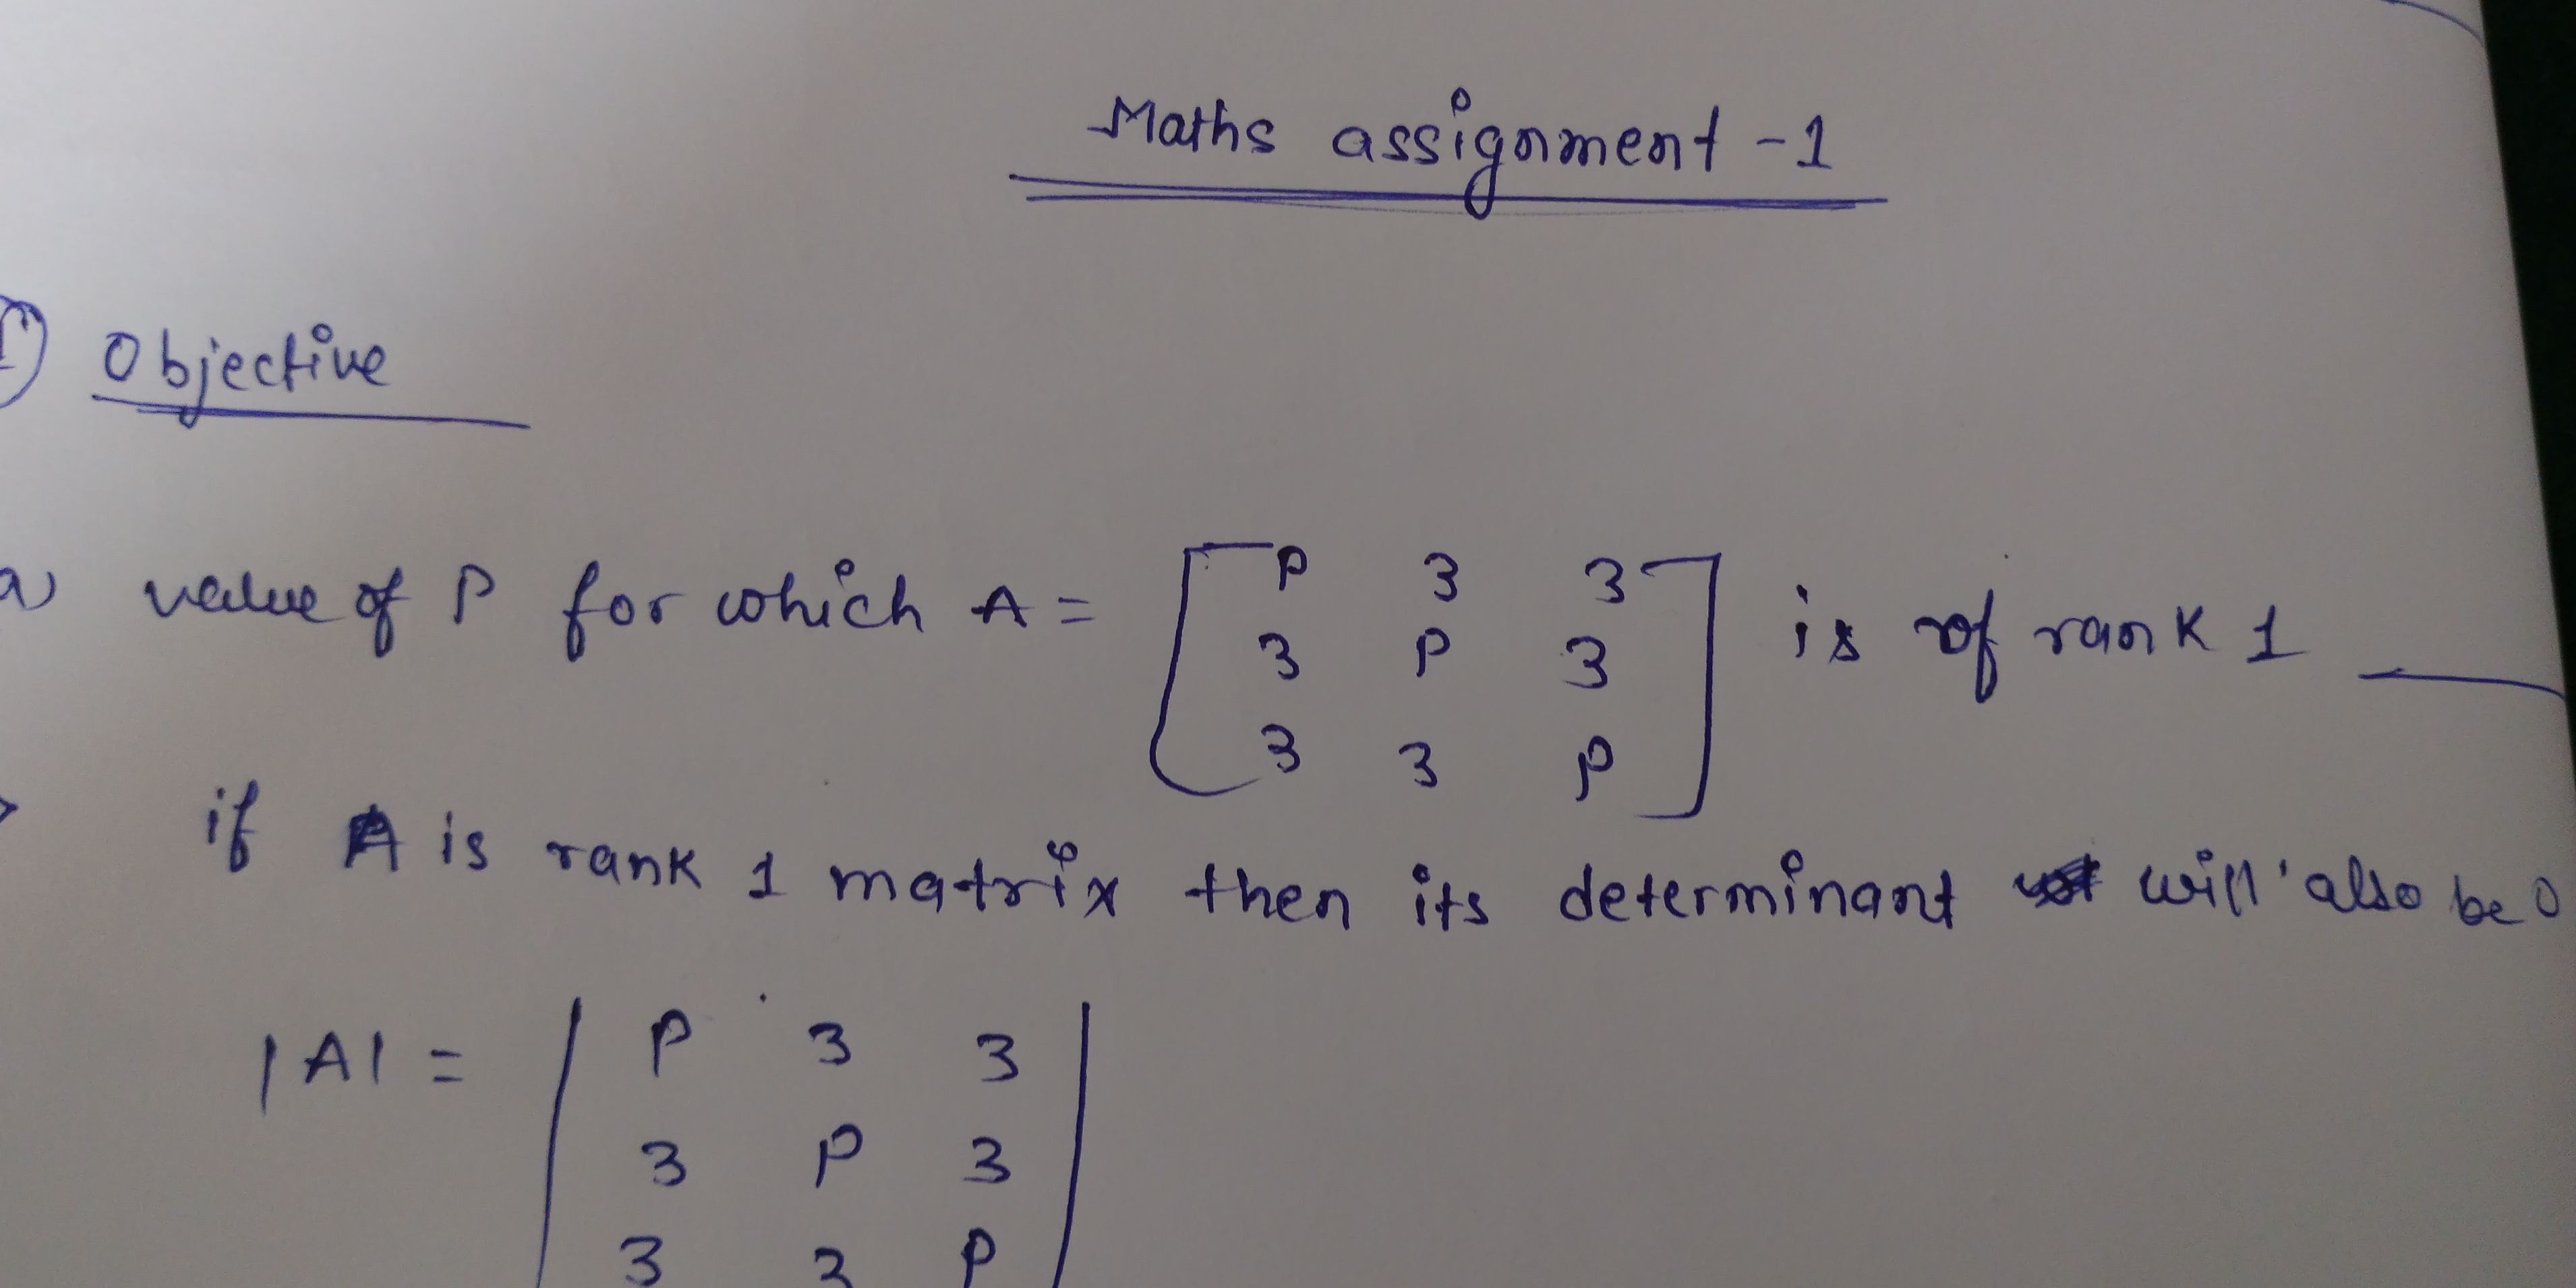 Maths assignment - 1
Objective
a) value of P for which A = [ P 3 3 ] is of rank 1
3 P 3
3 3 P
if A is rank 1 matrix then its determinant will also be 0
|A| = | P 3 3 |
3 P 3
3 3 P